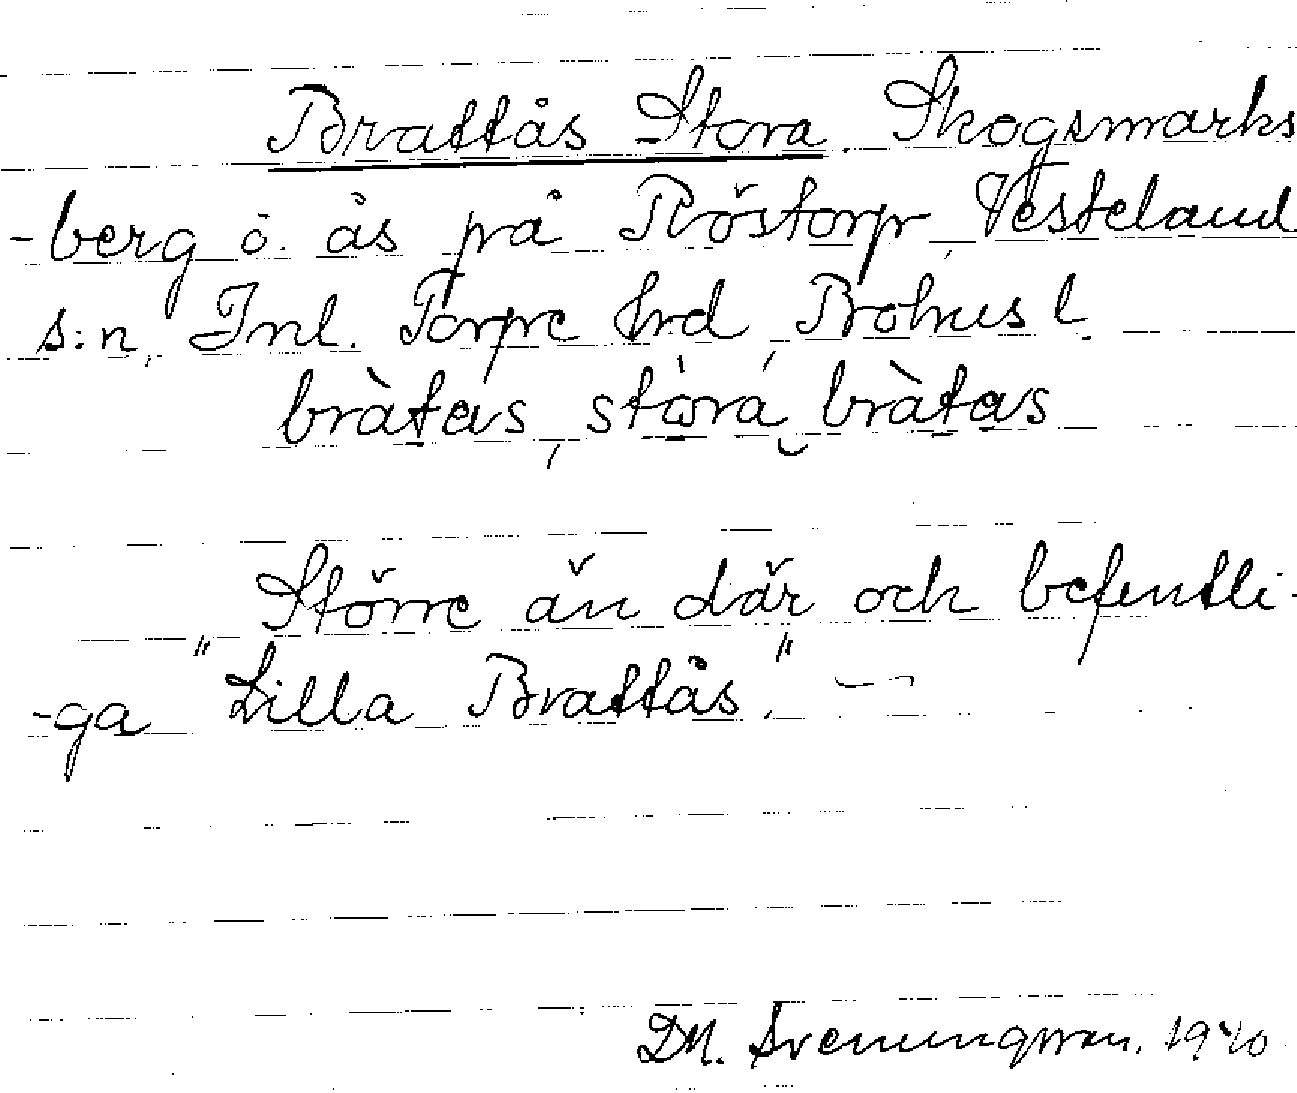 Brattås Stora. Skogsmarks
-berg o. ås på Röstorp, Vesteland
s:n, Inl. Torpe hrd, Bohus l.
bràtas, stórá bràtas
Större än där och befintli-
-ga "Lilla Brattås".
D.M. Svenungsson. 1940